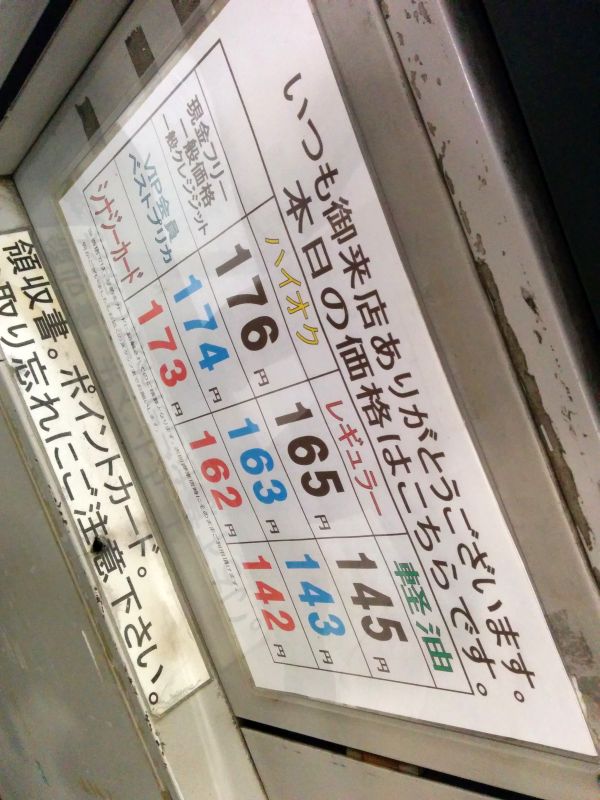 いつも御来店ありがとうございます。
本日の価格はこちらです。
ハイオク レギュラー 軽油
現金フリー
一般価格
一般クレジット
176円 165円 145円
VIP会員
ベストプリカ
174円 163円 143円
シナジーカード
173円 162円 142円
領収書。ポイントカード。
取り忘れにご注意下さい。